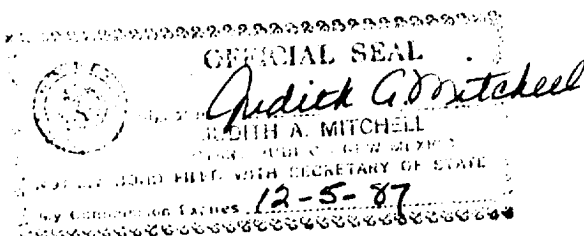 OFFICIAL SEAL
Judith A. Mitchell
JUDITH A. MITCHELL
NOTARY PUBLIC - NEW MEXICO
NOTARY BOND FILED WITH SECRETARY OF STATE
My Commission Expires 12-5-87